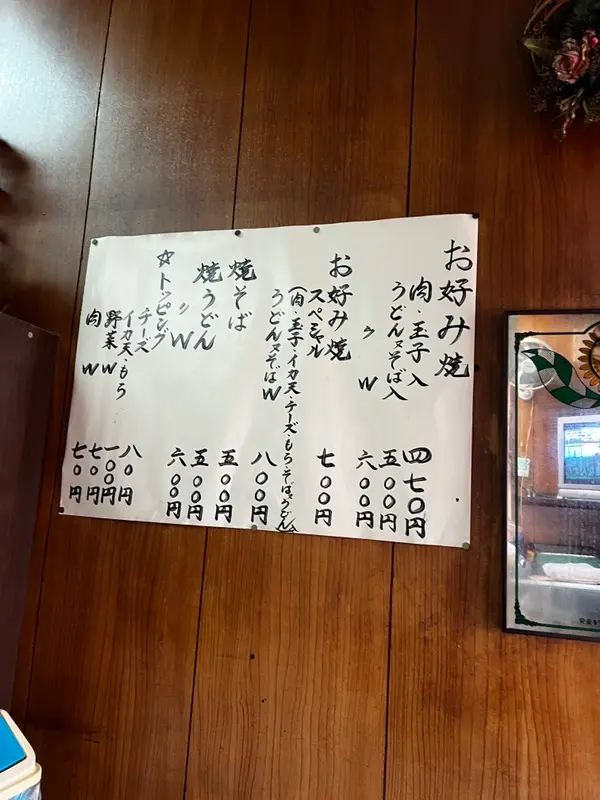 お好み焼
肉・玉子入 四七〇円
うどん又そば入 五〇〇円
〃 W 六〇〇円
お好み焼
スペシャル 七〇〇円
(肉・玉子・イカ天・チーズ・もち・そば又うどん入)
うどん又そばW 八〇〇円
焼そば 五〇〇円
焼うどん 五〇〇円
〃 W 六〇〇円
☆トッピング
チーズ
イカ天・もち 八〇円
野菜W 一〇〇円
肉W 七〇円
七〇円